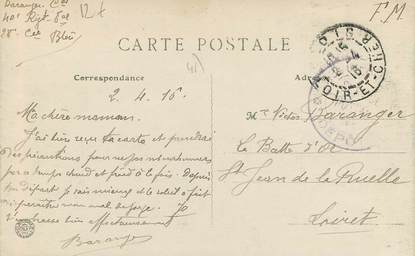 Baranger
40e Rgt
F.M.
12 x
CARTE POSTALE
Correspondance
LOIR-ET-CHER
2.4.16.
Ma chère maman.
J'ai bien reçu ta carte et prendrai
des précautions pour ne pas m'enrhumer
par ce temps chaud et froid à la fois. Depuis
mon départ je vais mieux et le soleil a fait
disparaître mon mal de gorge. Je
t'embrasse bien affectueusement
Baranger
Mr Victor Baranger
La Batte d'Or
St Jean de la Ruelle
Loiret